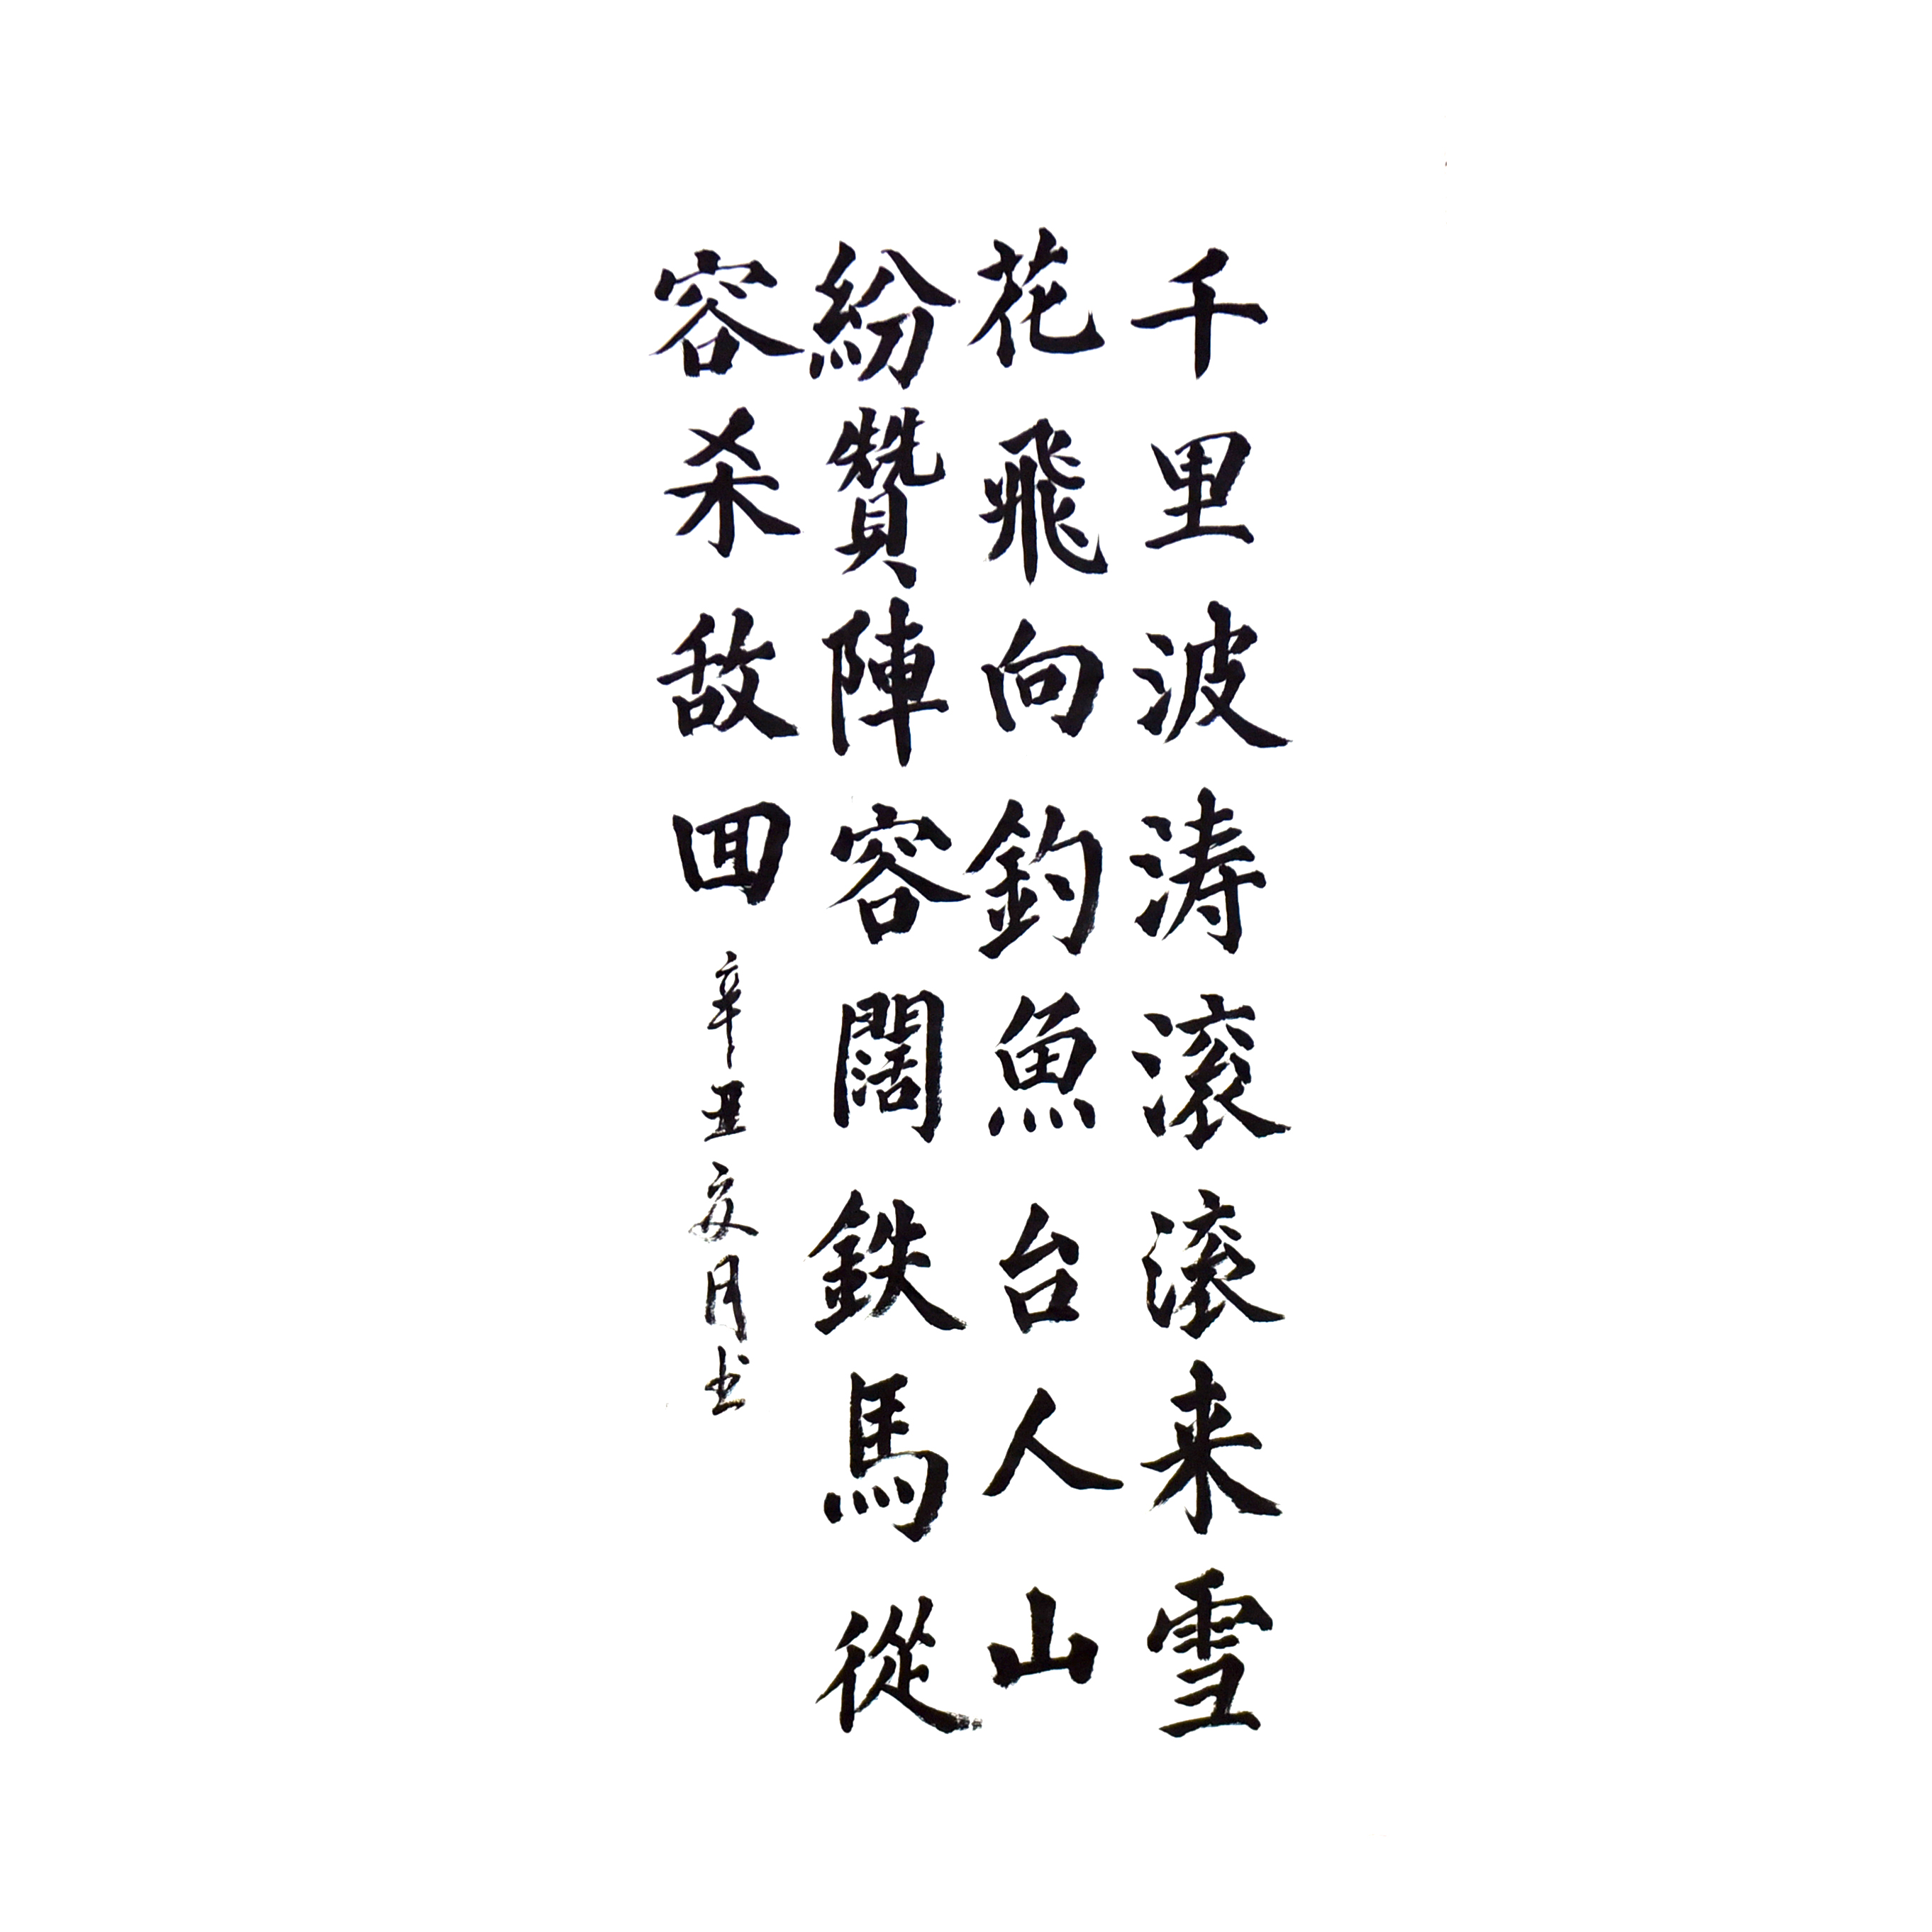 千里波涛滚滚来雪
花飛向釣魚台人山
紛贊陣容闊鉄馬從
容杀敌回
辛丑 月书